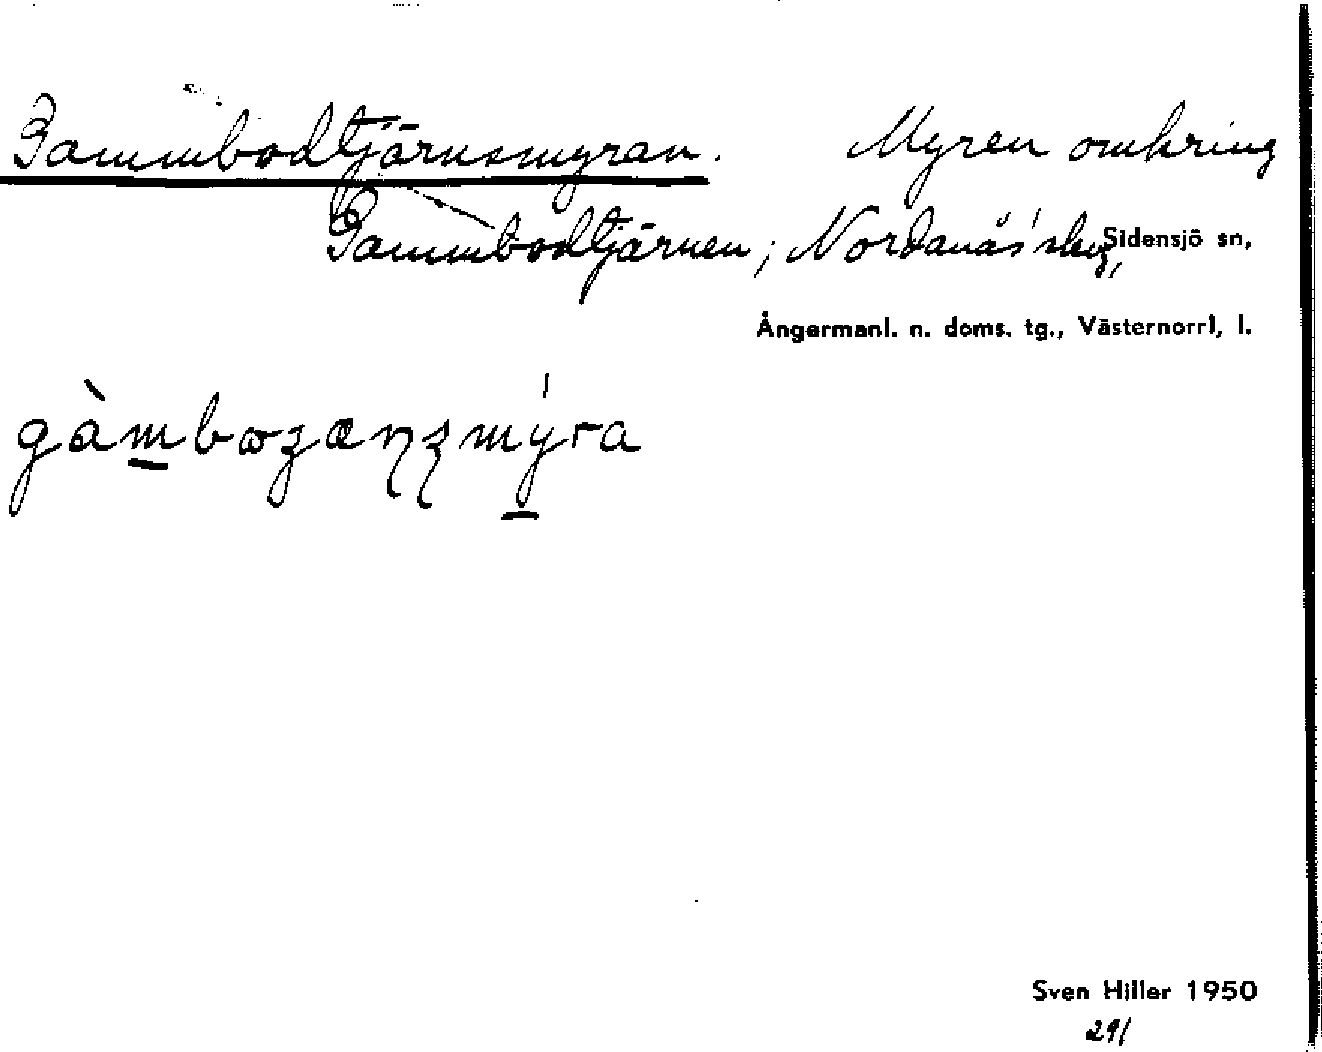 Gammbodtjärnsmyran. Myren omkring
Gammbodtjärnen; Nordanås' skog, Sidensjö sn,
Ångermanl. n. doms. tg., Västernorrl, l.
gàmbωʒæɳʂmýra
Sven Hiller 1950
29/